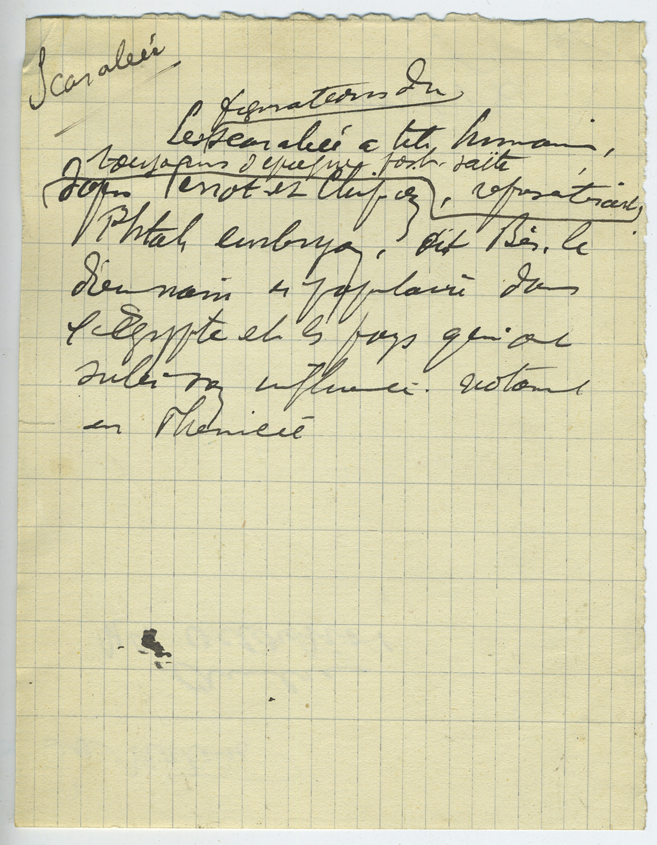 Scarabée
figurations du
Les scarabée a tête humaine,
toujours d'époque post-saïte
d'après Perrot et Chipiez, représentent
Phtah embryon, dit Bès, le
dieu nain si populaire dans
l'Egypte et les pays qui ont
subi son influence. notamt
en Phénicie